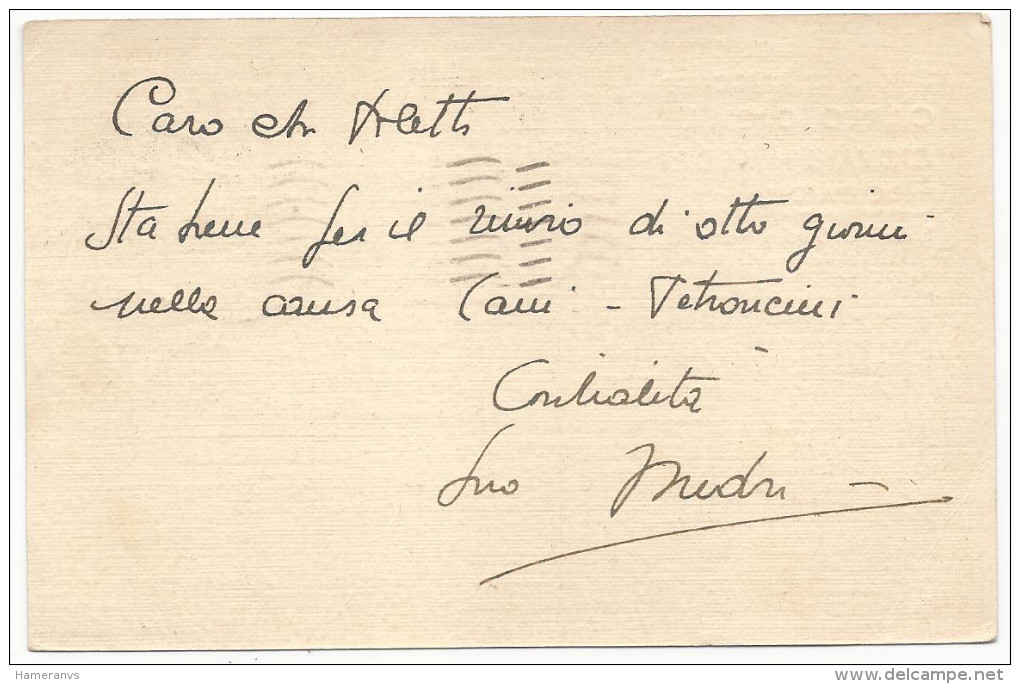 Caro
Sta bene per il rinvio di otto giorni
nella causa - Petroncini
Cordialità
Suo
Hameranvs
delcampe.net